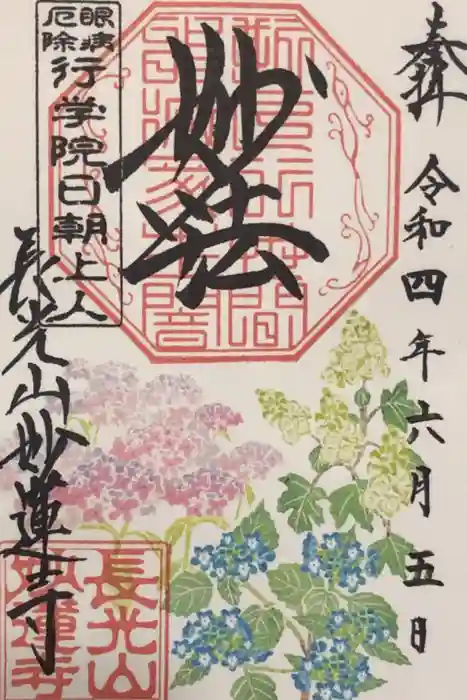 奉拝
令和四年六月五日
妙法
眼病
厄除
行学院日朝上人
長光山妙蓮寺
長光山
妙蓮寺